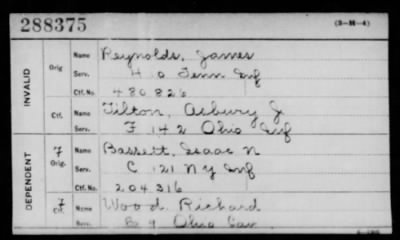 288375
(3-M-4)
INVALID
Orig
Name Reynolds, James
Serv. H 10 Tenn Inf
Ctf. No. 480826
Ctf.
Name Tilton, Asbury J
Serv. F 142 Ohio Inf
DEPENDENT
7
Orig.
Name Bassett, Isaac N
Serv. C 121 N Y Inf
Ctf. No. 204316
7
Ctf.
Name Wood Richard
Serv. B 9 Ohio Cav